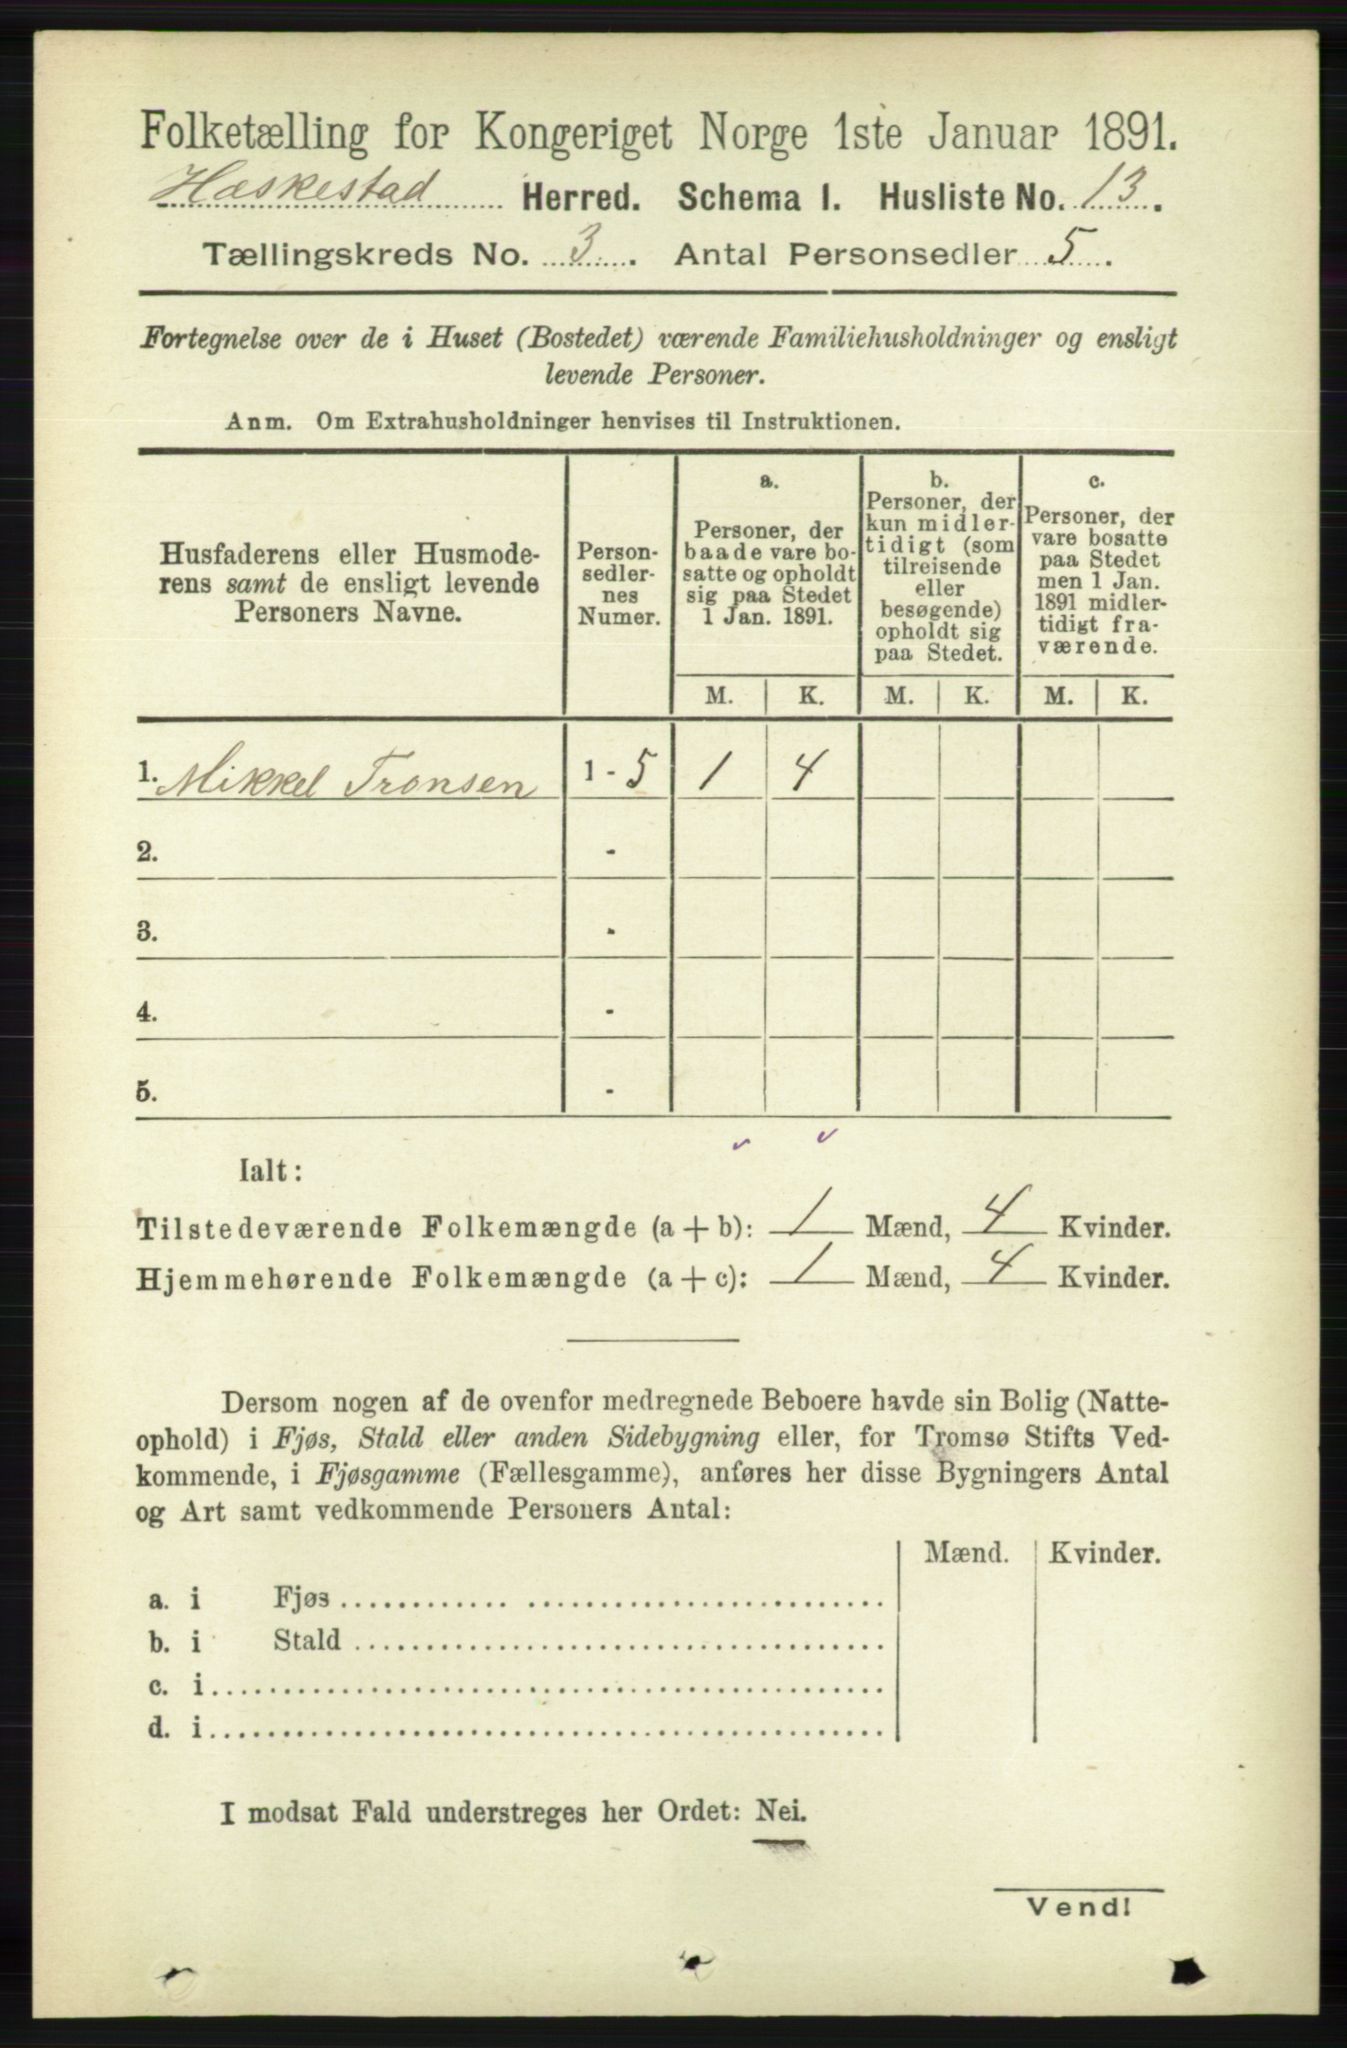 Folketælling for Kongeriget Norge 1ste Januar 1891.
Hæskestad Herred. Schema 1. Husliste No. 13.
Tællingskreds No. 3. Antal Personsedler 5.
Fortegnelse over de i Huset (Bostedet) værende Familiehusholdninger og ensligt
levende Personer.
Anm. Om Extrahusholdninger henvises til Instruktionen.
Husfaderens eller Husmode-
rens samt de ensligt levende
Personers Navne.
Person-
sedler-
nes
Numer.
a.
Personer, der
baade vare bo-
satte og opholdt
sig paa Stedet
1 Jan. 1891.
b.
Personer, der
kun midler-
tidigt (som
tilreisende
eller
besøgende)
opholdt sig
paa Stedet.
c.
Personer, der
vare bosatte
paa Stedet
men 1 Jan.
1891 midler-
tidigt fra-
værende.
M. K. M. K. M. K.
1. Mikkel Tronsen 1 - 5 1 4
2. -
3. -
4. -
5. -
Ialt:
Tilstedeværende Folkemængde (a + b): 1 Mænd, 4 Kvinder.
Hjemmehørende Folkemængde (a + c): 1 Mænd, 4 Kvinder.
Dersom nogen af de ovenfor medregnede Beboere havde sin Bolig (Natte-
ophold) i Fjøs, Stald eller anden Sidebygning eller, for Tromsø Stifts Ved-
kommende, i Fjøsgamme (Fællesgamme), anføres her disse Bygningers Antal
og Art samt vedkommende Personers Antal:
Mænd. Kvinder.
a. i Fjøs
b. i Stald
c. i
d. i
I modsat Fald understreges her Ordet: Nei.
Vend!